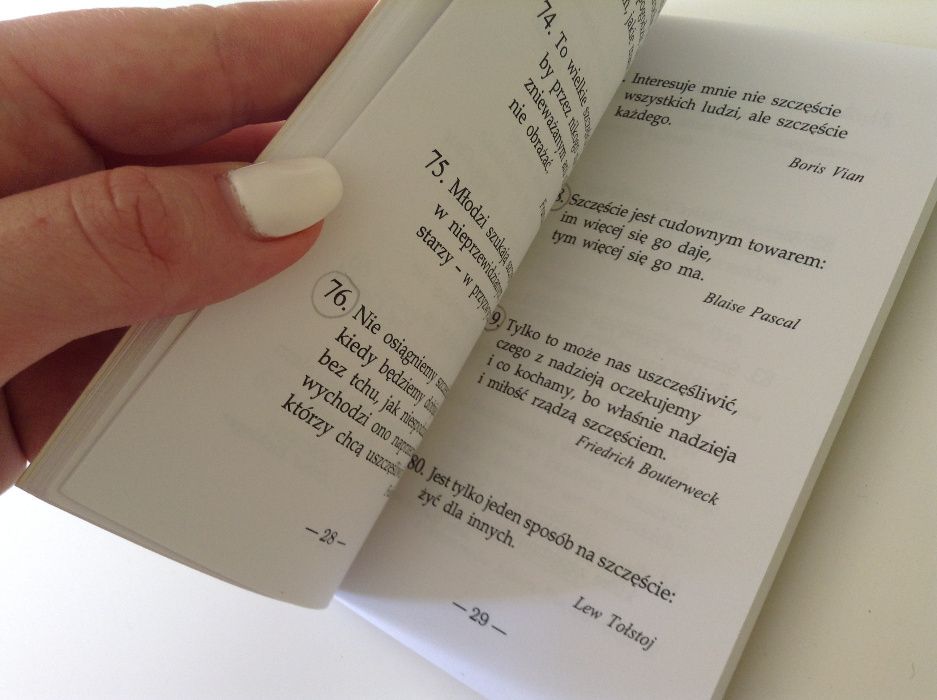 74. To wielkie
by przez nikogo
znieważanym
nie obrażać.
75. Młodzi szukają
w
starzy – w
76. Nie osiągniemy
kiedy będziemy
bez tchu, jak
wychodzi ono
którzy chcą
— 28 —
. Interesuje mnie nie szczęście
wszystkich ludzi, ale szczęście
każdego.
Boris Vian
8. Szczęście jest cudownym towarem:
im więcej się go daje,
tym więcej się go ma.
Blaise Pascal
9. Tylko to może nas uszczęśliwić,
czego z nadzieją oczekujemy
i co kochamy, bo właśnie nadzieja
i miłość rządzą szczęściem.
Friedrich Bouterweck
80. Jest tylko jeden sposób na szczęście:
żyć dla innych.
Lew Tołstoj
— 29 —